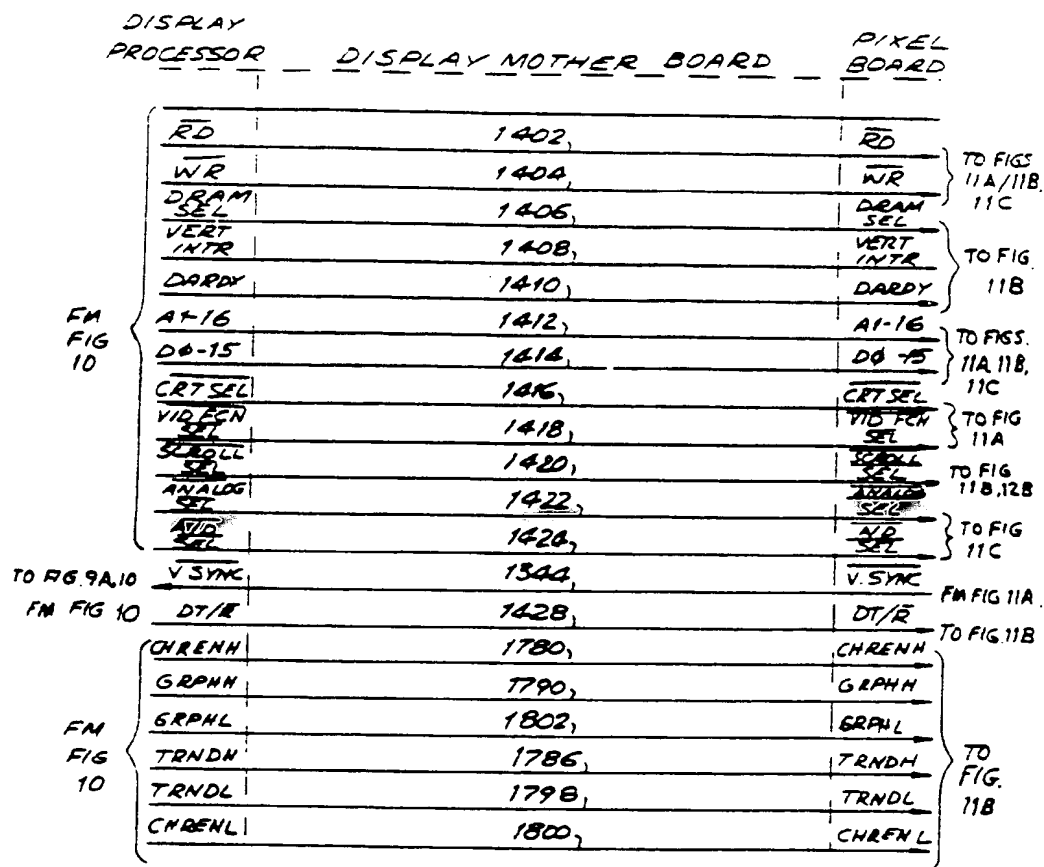 DISPLAY PROCESSOR
DISPLAY MOTHER BOARD
PIXEL BOARD
FM FIG 10
RD 1402 RD
WR 1404 WR
TO FIGS 11A/11B, 11C
DRAM SEL 1406 DRAM SEL
VERT INTR 1408 VERT INTR
DARDY 1410 DARDY
TO FIG. 11B
A1-16 1412 A1-16
DØ-15 1414 DØ-15
TO FIGS. 11A, 11B, 11C
CRT SEL 1416 CRT SEL
VID FCN SEL 1418 VID FCN SEL
TO FIG 11A
SCROLL SEL 1420 SCROLL SEL
TO FIG 11B, 12B
ANALOG SEL 1422 ANALOG SEL
SEL SEL
TO FIG 11C
TO FIG. 9A,10 V SYNC 1344 V. SYNC FM FIG 11A.
FM FIG 10 DT/R 1428 DT/R TO FIG. 11B
FM FIG 10
CHRENH 1780 CHRENH
GRPHH 1790 GRPHH
GRPHL 1802 GRPHL
TRNDH 1786 TRNDH
TRNDL 1798 TRNDL
CHRENL 1800 CHRENL
TO FIG. 11B